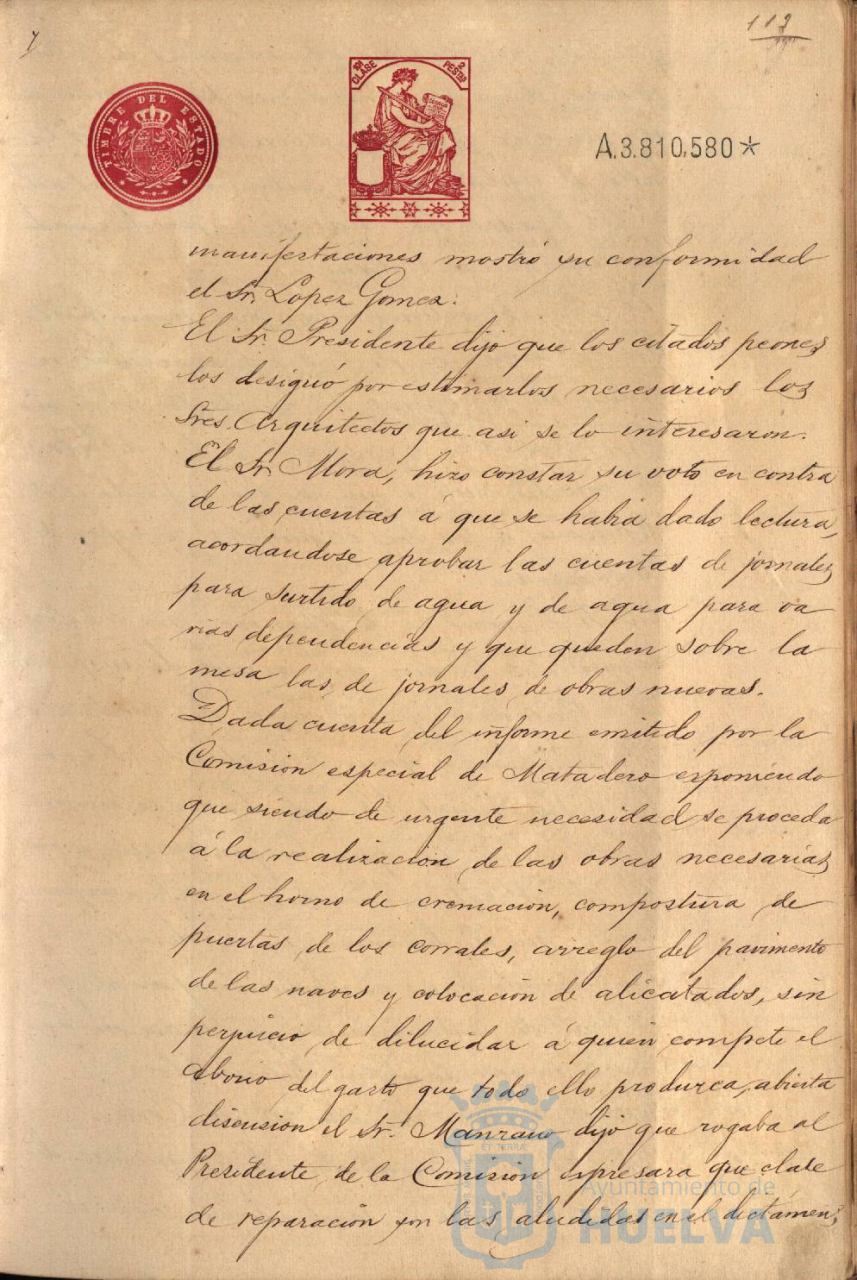 113
TIMBRE DEL ESTADO
10ª CLASE 2 PESTAS
A.3.810.580*
manifestaciones mostró su conformidad
el Sr. Lopez Gomez.
El Sr. Presidente dijo que los citados peones
los designó por estimarlos necesarios los
Sres. Arquitectos que asi se lo interesaron.
El Sr. Mora, hizo constar su voto en contra
de las cuentas á que se habia dado lectura,
acordandose aprobar las cuentas de jornales
para surtido de agua y de agua para va
rias dependencias y que queden sobre la
mesa las de jornales de obras nuevas.
Dada cuenta del informe emitido por la
Comision especial de Matadero exponiendo
que siendo de urgente necesidad se proceda
á la realizacion de las obras necesarias
en el horno de cremacion, compostura de
puertas de los corrales, arreglo del pavimento
de las naves y colocacion de alicatados, sin
perjuicio de dilucidar á quien compete el
abono del gasto que todo ello produzca, abierta
discusion el Sr. Manzano dijo que rogaba al
Presidente de la Comision espresara que clase
de reparacion son las aludidas en el dictámen;
Ayuntamiento de
HUELVA